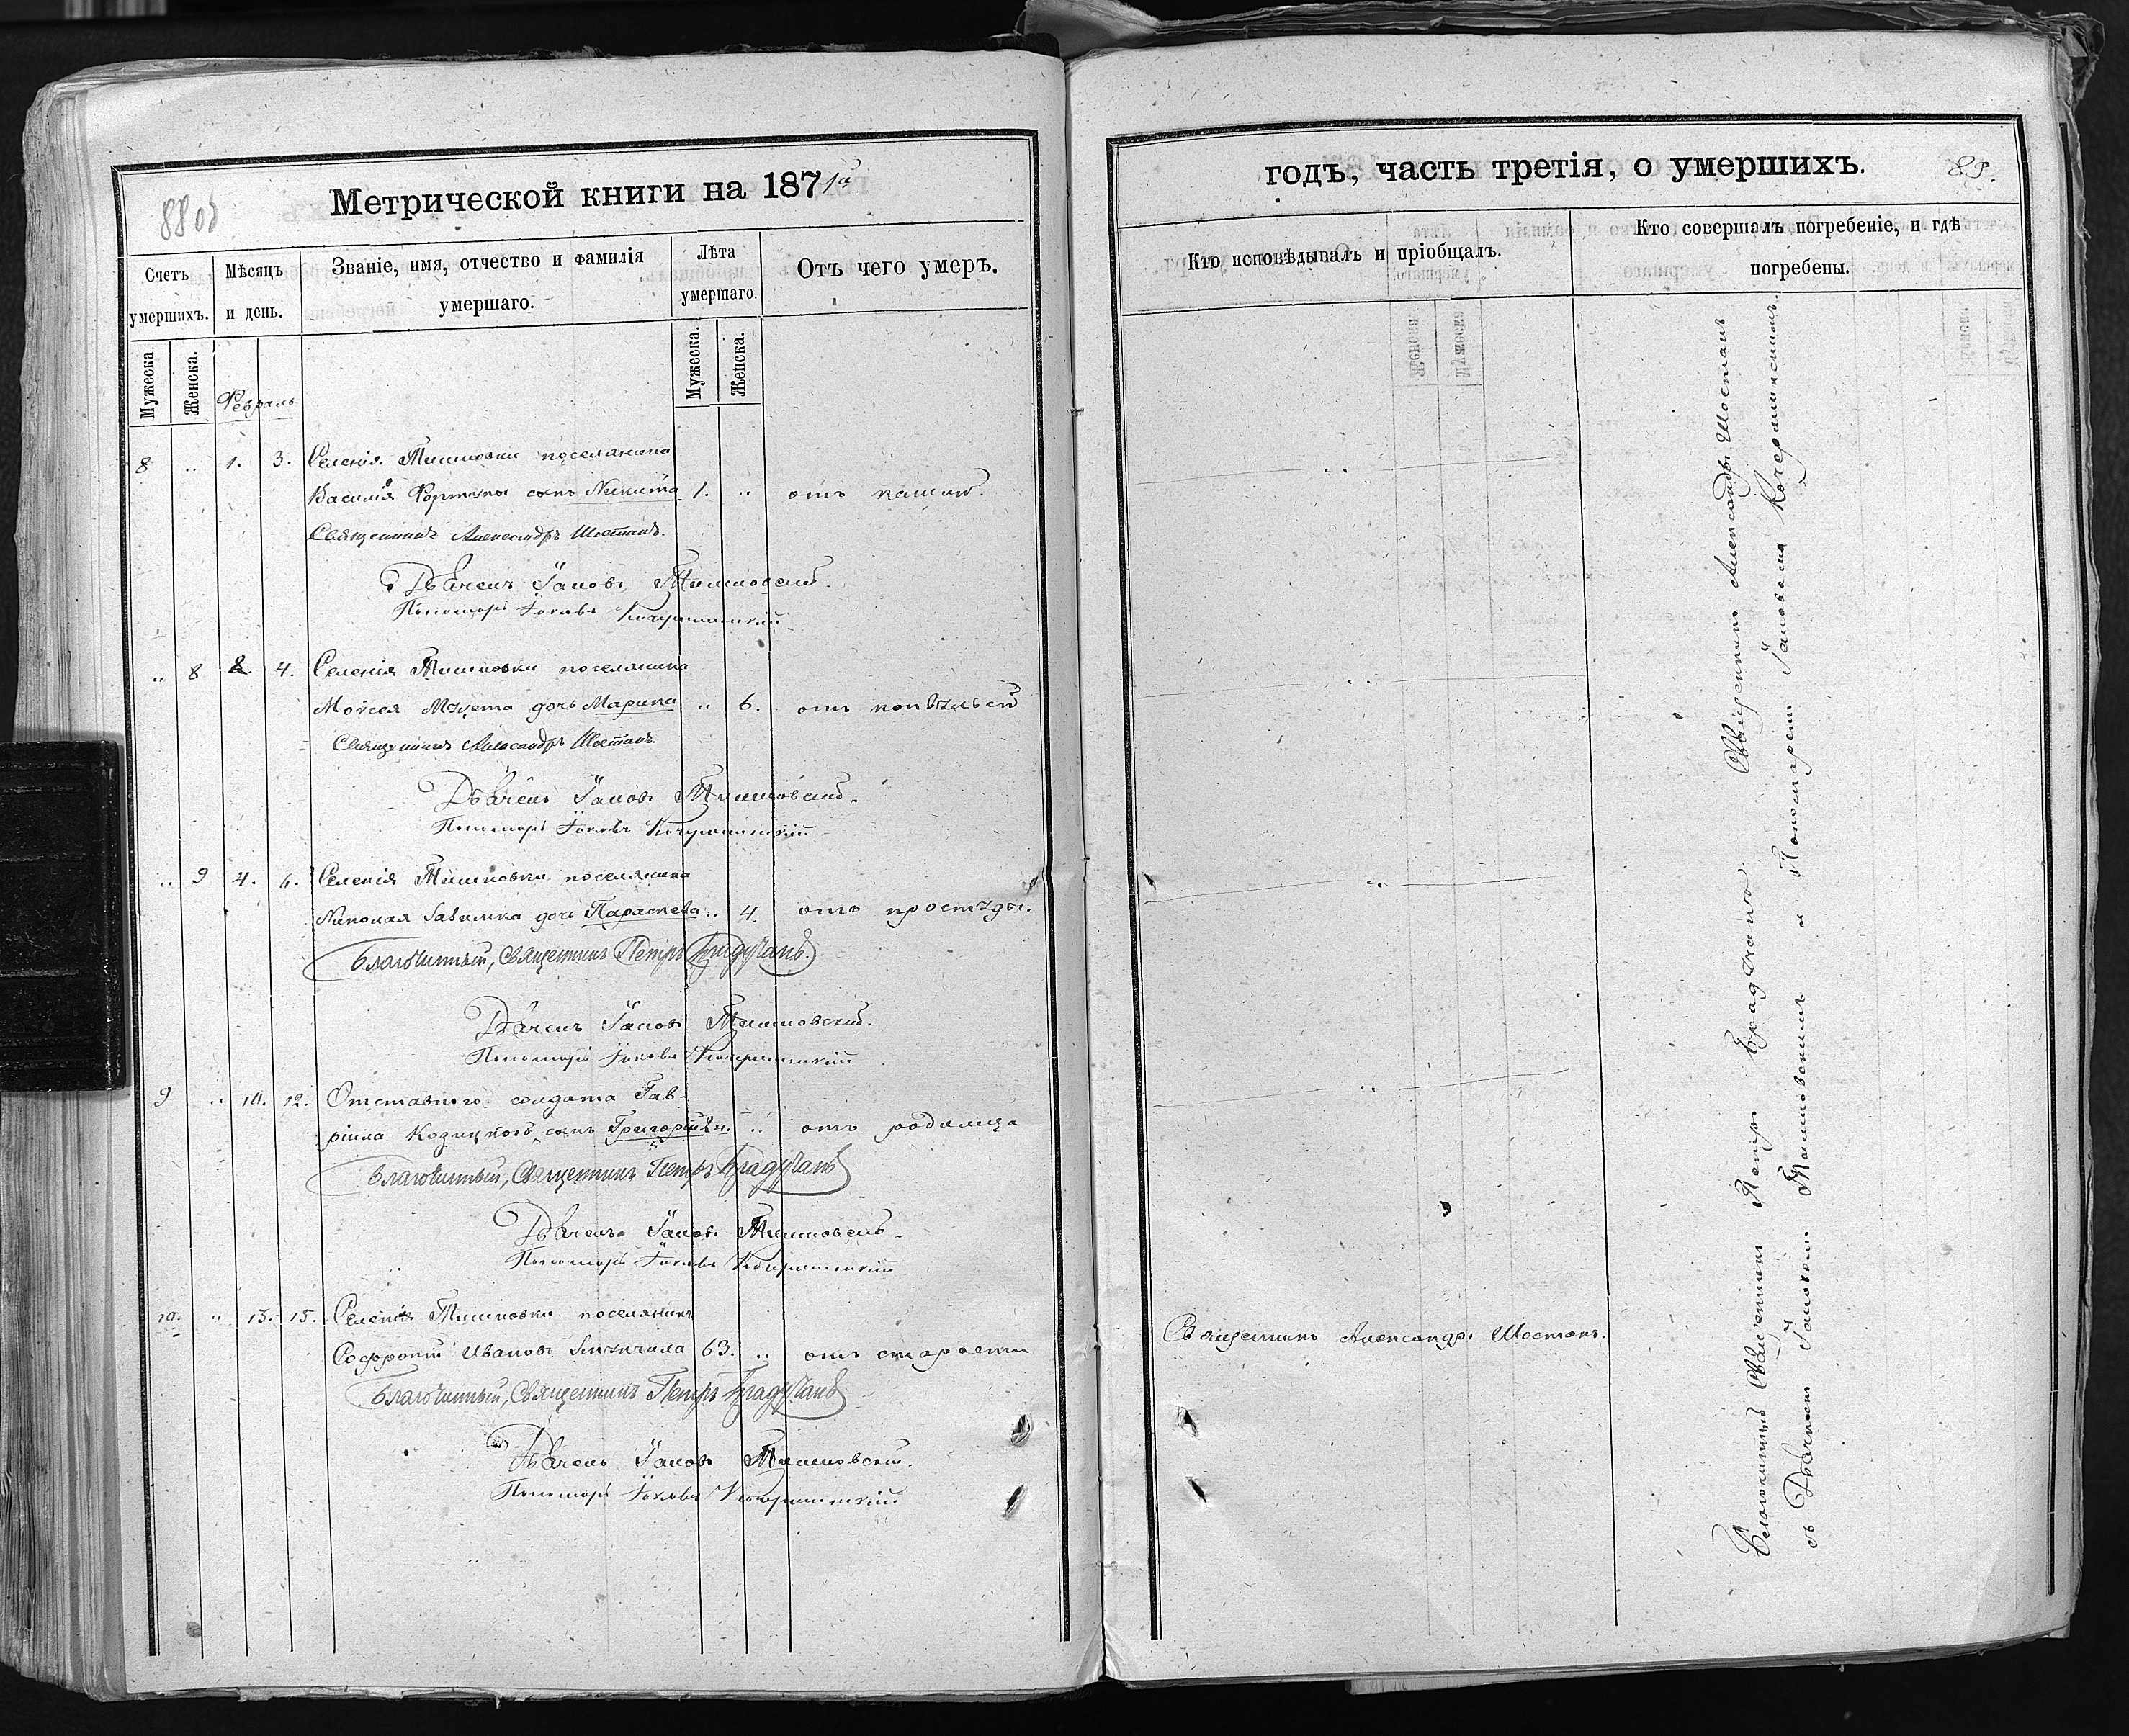 88об
Метрической книги на 1871й
Счетъ умершихъ.
Мѣсяцъ и день.
Званіе, имя, отчество и фамилія умершаго.
Лѣта умершаго.
Отъ чего умеръ.
Мужеска.
Женска.
Февраль
Мужеска.
Женска.
8 .. 1. 3. Селенія Тишковки поселянина
Василія сынъ Никита 1. .. отъ кашля.
Священникъ Александръ Шостакъ.
Дьячекъ Іаковъ Тишковскій.
Пономарь Іаковъ
.. 8 2. 4. Селенія Тишковки поселянина
Моѵсея дочь Марина .. 6. отъ
Священникъ Александръ Шостакъ.
Дьячекъ Іаковъ Тишковскій.
Пономарь Іаковъ
.. 9 4. 6. Селенія Тишковки поселянина
Николая дочь Параскева .. 4. отъ простуды.
Благочинный, Священникъ Петръ Брадучанъ.
Дьячекъ Іаковъ Тишковскій.
Пономарь Іаковъ
9 .. 10. 12. Отставнаго солдата Гав-
ріила сынъ Григорій 2 н. .. отъ родимца
Благочинный, Священникъ Петръ Брадучанъ
Дьячекъ Іаковъ Тишковскій.
Пономарь Іаковъ
10. .. 13. 15. Селенія Тишковки поселянинъ
Софроній Ивановъ 63. .. отъ старости
Благочинный, Священникъ Петръ Брадучанъ
Дьячекъ Іаковъ Тишковскій.
Пономарь Іаковъ
годъ, часть третія, о умершихъ.
89.
Кто исповѣдывалъ и пріобщалъ.
Кто совершалъ погребеніе, и гдѣ погребены.
Священникъ Александръ Шостакъ.
Благочинный Священникъ Петръ Брадучанъ. Священникъ Александръ Шостакъ
съ Дьячкомъ Іаковомъ Тишковскимъ и Пономаремъ Іаковомъ